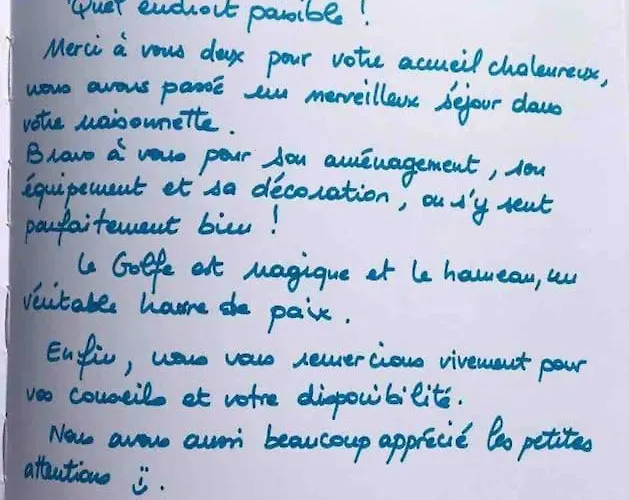 Quel endroit paisible !
Merci à vous deux pour votre accueil chaleureux,
nous avons passé un merveilleux séjour dans
votre maisonnette.
Bravo à vous pour son aménagement, son
équipement et sa décoration, on s'y sent
parfaitement bien !
Le Golfe est magique et le hameau, un
véritable havre de paix.
Enfin, nous vous remercions vivement pour
vos conseils et votre disponibilité.
Nous avons aussi beaucoup apprécié les petites
attentions :).